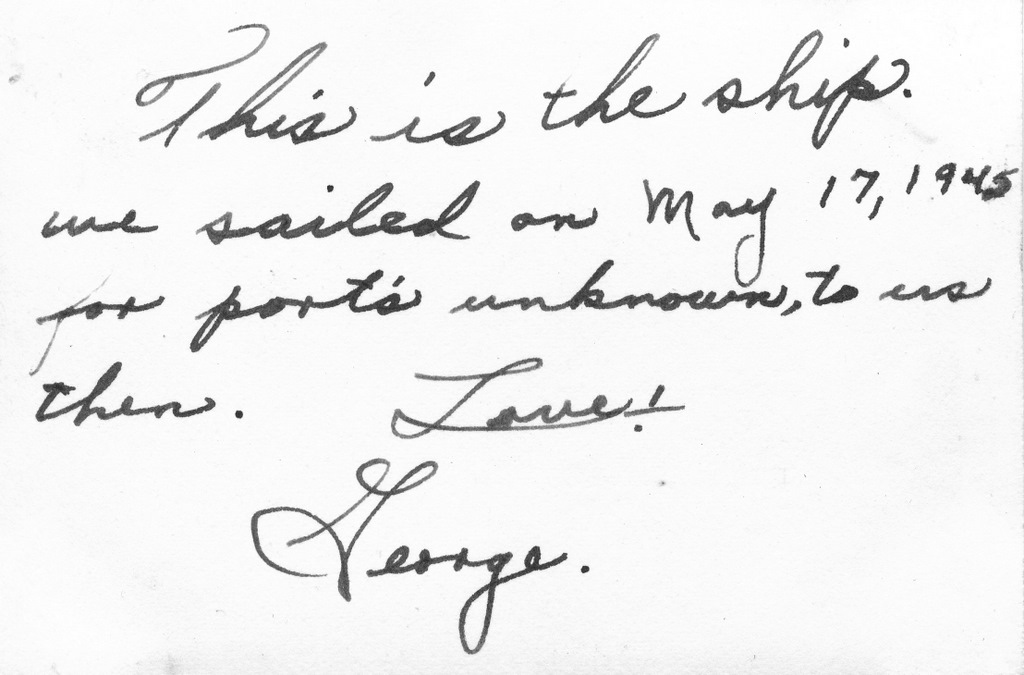 This is the ship.
we sailed on May 17, 1945
for port's unknown, to us
then. Love!
George.